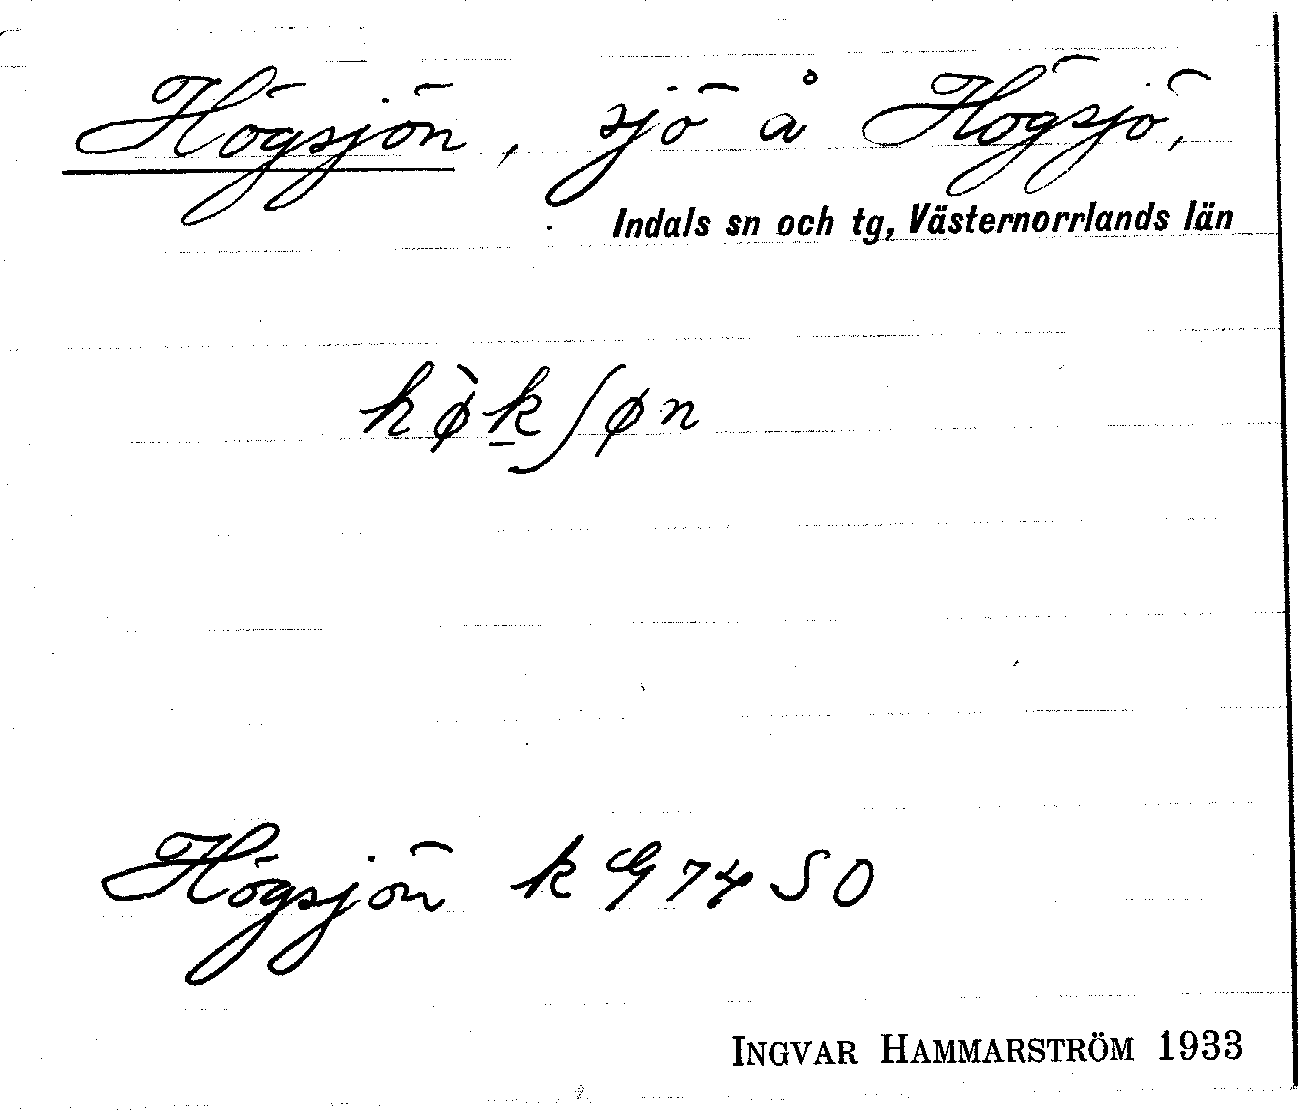 Högsjön, sjö å Högsjö,
Indals sn och tg, Västernorrlands län
hø̀k̲ʃøn
Högsjön k G 74 SO
INGVAR HAMMARSTRÖM 1933